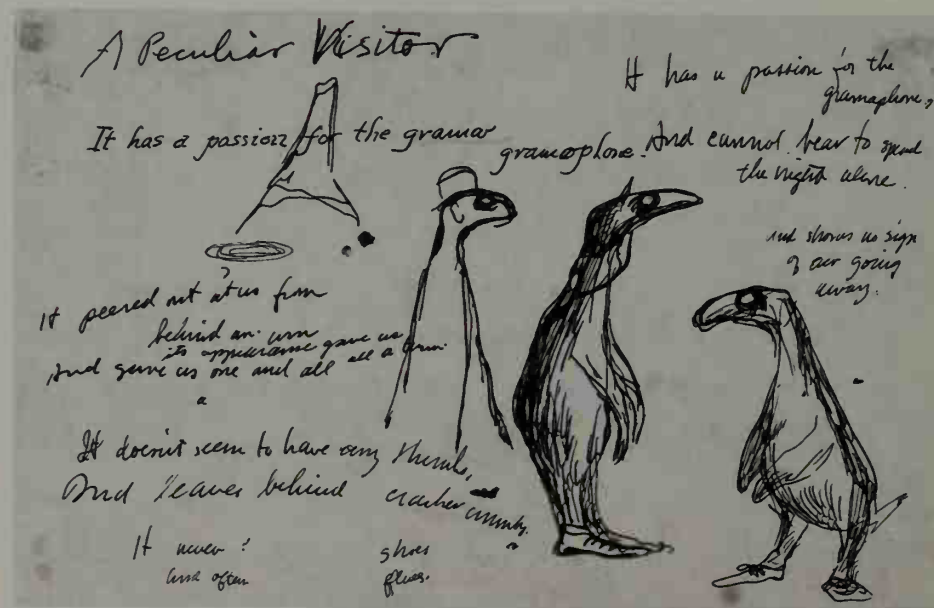 A Peculiar Visitor
It has a passion for the
gramaphone,
It has a passion for the gramar
gramophone. And cannot bear to spend
the night alone.
and shows no sign
of our going
away.
It peered out at us from
behind an urn
its appearance gave us
all a turn.
And gave us one and all
a
It doesn't seem to have any thumbs,
And leaves behind cracker crumbs.
It never ?
and often
shoes